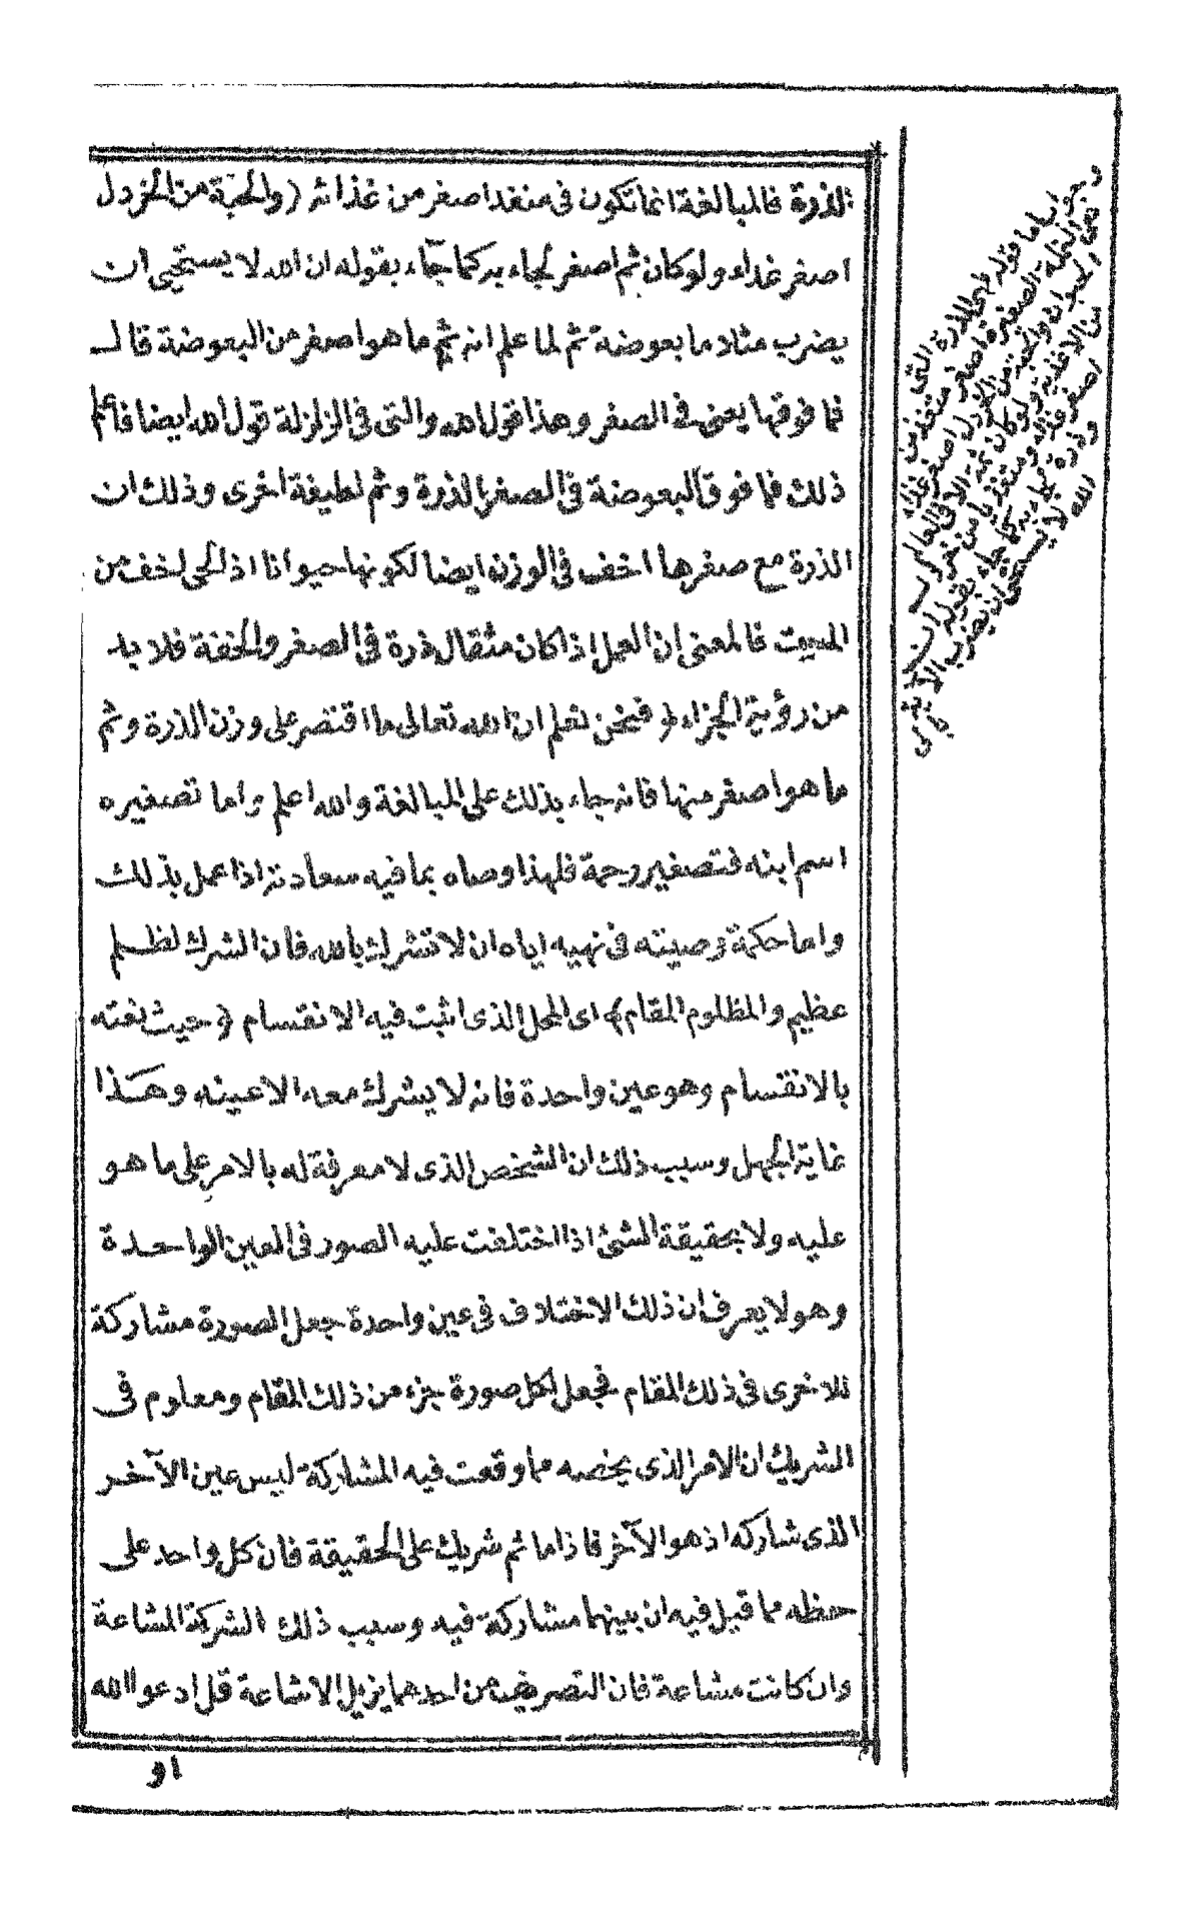 الذرة فالمبالغة انما تكون فى منفذ اصغر من غذائه (والحبة من الخردل
اصغر غذاء ولو كان ثم اصغر لجاء به كما جاء بقوله ان الله لا يستحيى ان
يضرب مثلا ما بعوضة ثم لما علم انه ثم ما هو اصغر من البعوضة قال
فما فوقها يعنى فى الصغر وهذا قول الله والتى فى الزلزلة قول الله ايضا فاعلم
ذلك فما فوق البعوضة فى الصغر الذرة وثم لطيفة اخرى وذلك ان
الذرة مع صغرها اخف فى الوزن ايضا لكونها حيوانا اذ الحى اخف من
الميت فالمعنى ان العمل اذا كان مثقال ذرة فى الصغر والخفة فلا بد
من رؤية الجزاء) فنحن نعلم ان الله تعالى ما اقتصر على وزن الذرة وثم
ما هو اصغر منها فانه جاء بذلك على المبالغة والله اعلم واما تصغيره
اسم ابنه فتصغير رحمة فلهذا وصاه بما فيه سعادته اذا عمل بذلك
واما حكمة وصيته فى نهيه اياه ان لا تشرك بالله فان الشرك لظلم
عظيم والمظلوم المقام) اى المحل الذى اثبت فيه الانقسام (حيث نعته
بالانقسام وهو عين واحدة فانه لا يشرك معه الا عينه وهذا
غاية الجهل وسبب ذلك ان الشخص الذى لا معرفة له بالامر على ما هو
عليه ولا بحقيقة الشئ اذا اختلفت عليه الصور فى العين الواحدة
وهو لا يعرف ان ذلك الاختلاف فى عين واحدة جعل الصورة مشاركة
للاخرى فى ذلك المقام فجعل لكل صورة جزء من ذلك المقام ومعلوم فى
الشريك ان الامر الذى يخصه مما وقعت فيه المشاركة ليس عين الآخر
الذى شاركه اذ هو الآخر فاذا ما ثم شريك على الحقيقة فان كل واحد على
حظه مما قيل فيه ان بينهما مشاركة فيه وسبب ذلك الشركة المشاعة
وان كانت مشاعة فان التصريف من احدهما يزيل الاشاعة قل ادعوا الله
او